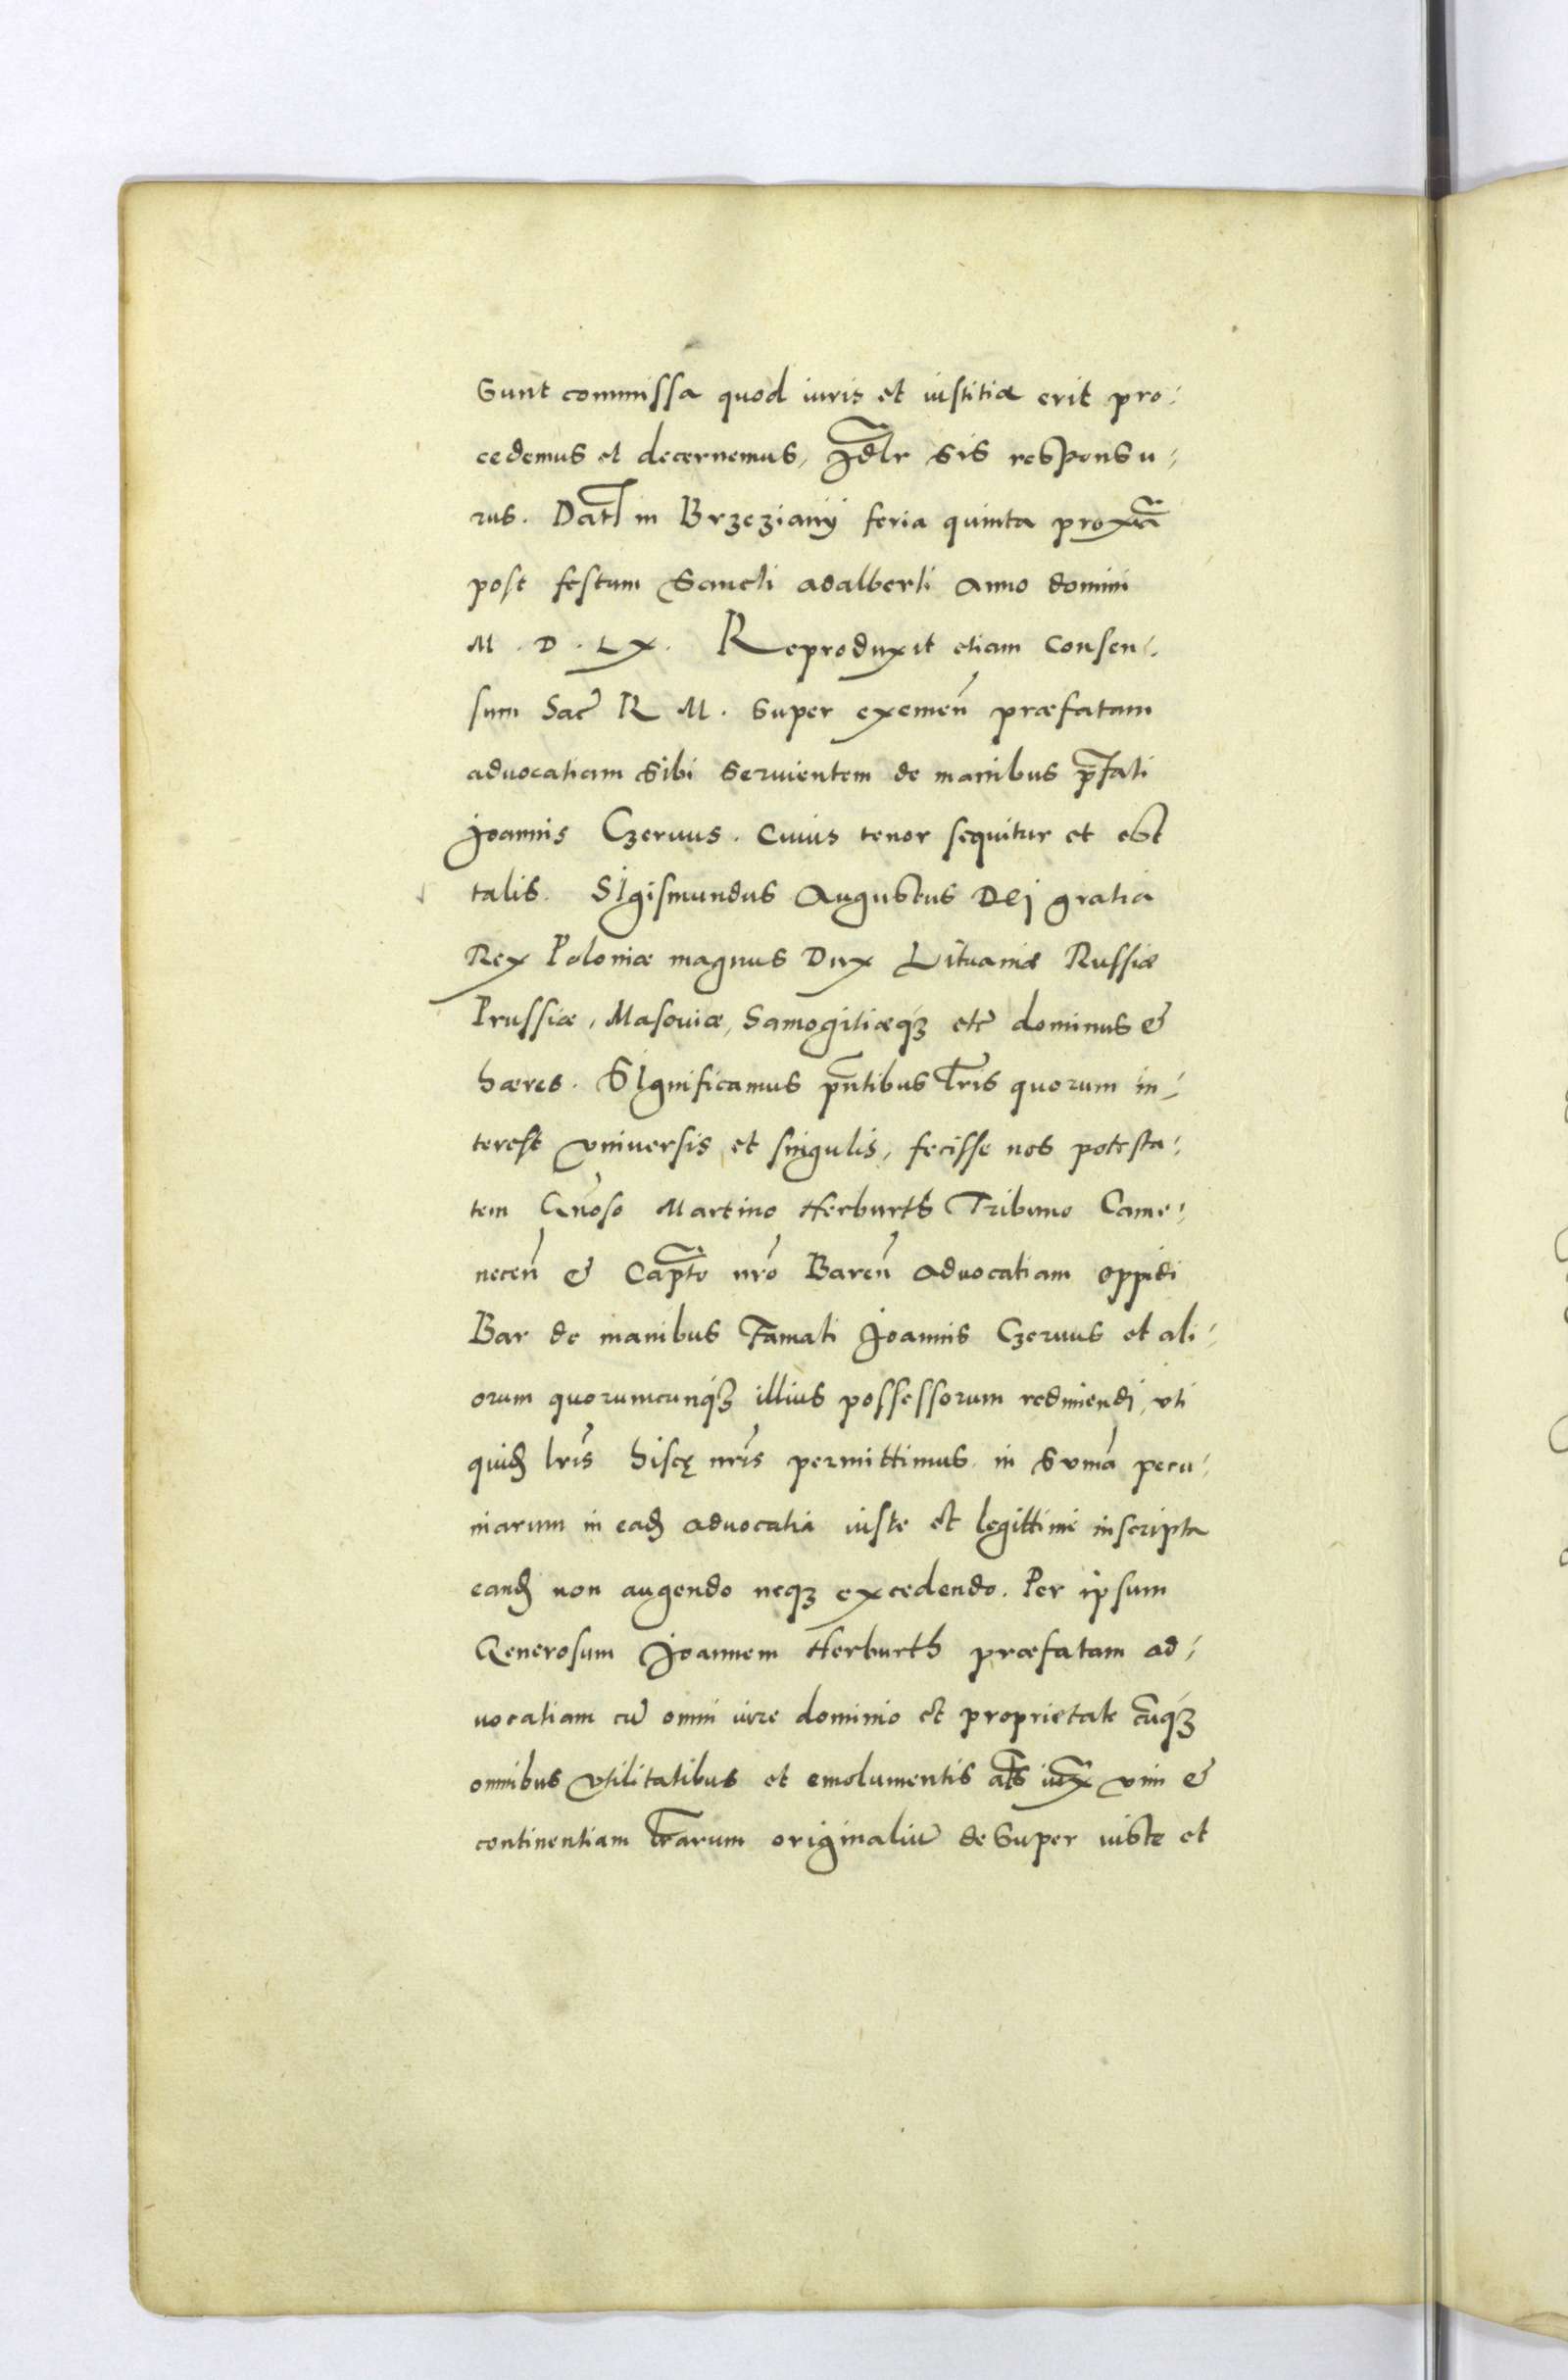 Sunt commissa quod iuris et iustitiæ erit pro:
cedemus et decernemus, Jdr̃ sis responsu:
rus. Dat in Brzezianÿ feria quinta proxã
post festum Sancti adalberti Anno domini
M . D . Lx. Reproduxit etiam Consen:
sum Sac̃ R M. super exemeñ præfatam
advocatiam sibi seruientem de manibus p̃fati
Joannis Czeruus. Cuius tenor sequitur et est
talis. SIgismundus Augustus DEj gratia
Rex Poloniæ magnus Dux Lituaniæ Russiæ
Prussiæ, Masouiæ, Samogitiæq3 etc̃ dominus &
hæres. SIgnificamus p̃ntibus Lr̃is quorum in:
terest vniuersis et singulis, fecisse nos potesta:
tem Gñoso Martino Herburth Tribuno Came:
neceñ & Cap̃to nr̃o Bareñ Aduocatiam oppidi
Bar de manibus Famati Joannis Czeruus et ali:
orum quorumcunq3 illius possessorum redimendi, vti
quid̃ lr̃is hiscę nr̃is permittimus in summã pecu:
niarum in ead̃ aduocatia iuste et legittime inscripta
eand̃ non augendo neq3 excedendo. Per ipsum
Generosum Joannem Herburth præfatam ad:
uocatiam cũ omni iure dominio et proprietate cũq3
omnibus vtilitatibus et emolumentis at̃s iux̃ vim &
continentiam lr̃arum originaliũ desuper iuste et